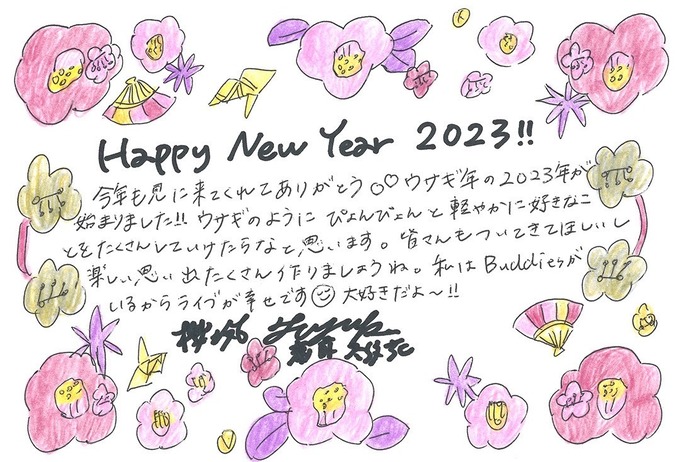 Happy New Year 2023!!
今年も見に来てくれてありがとう○♡ウサギ年の2023年が
始まりました!! ウサギのように ぴょんぴょんと軽やかに好きなこ
とをたくさんしていけたらなと思います。皆さんもついてきてほしいし
楽しい思い出たくさん作りましょうね。私はBuddiesが
いるからライブが幸せです 大好きだよ〜!!